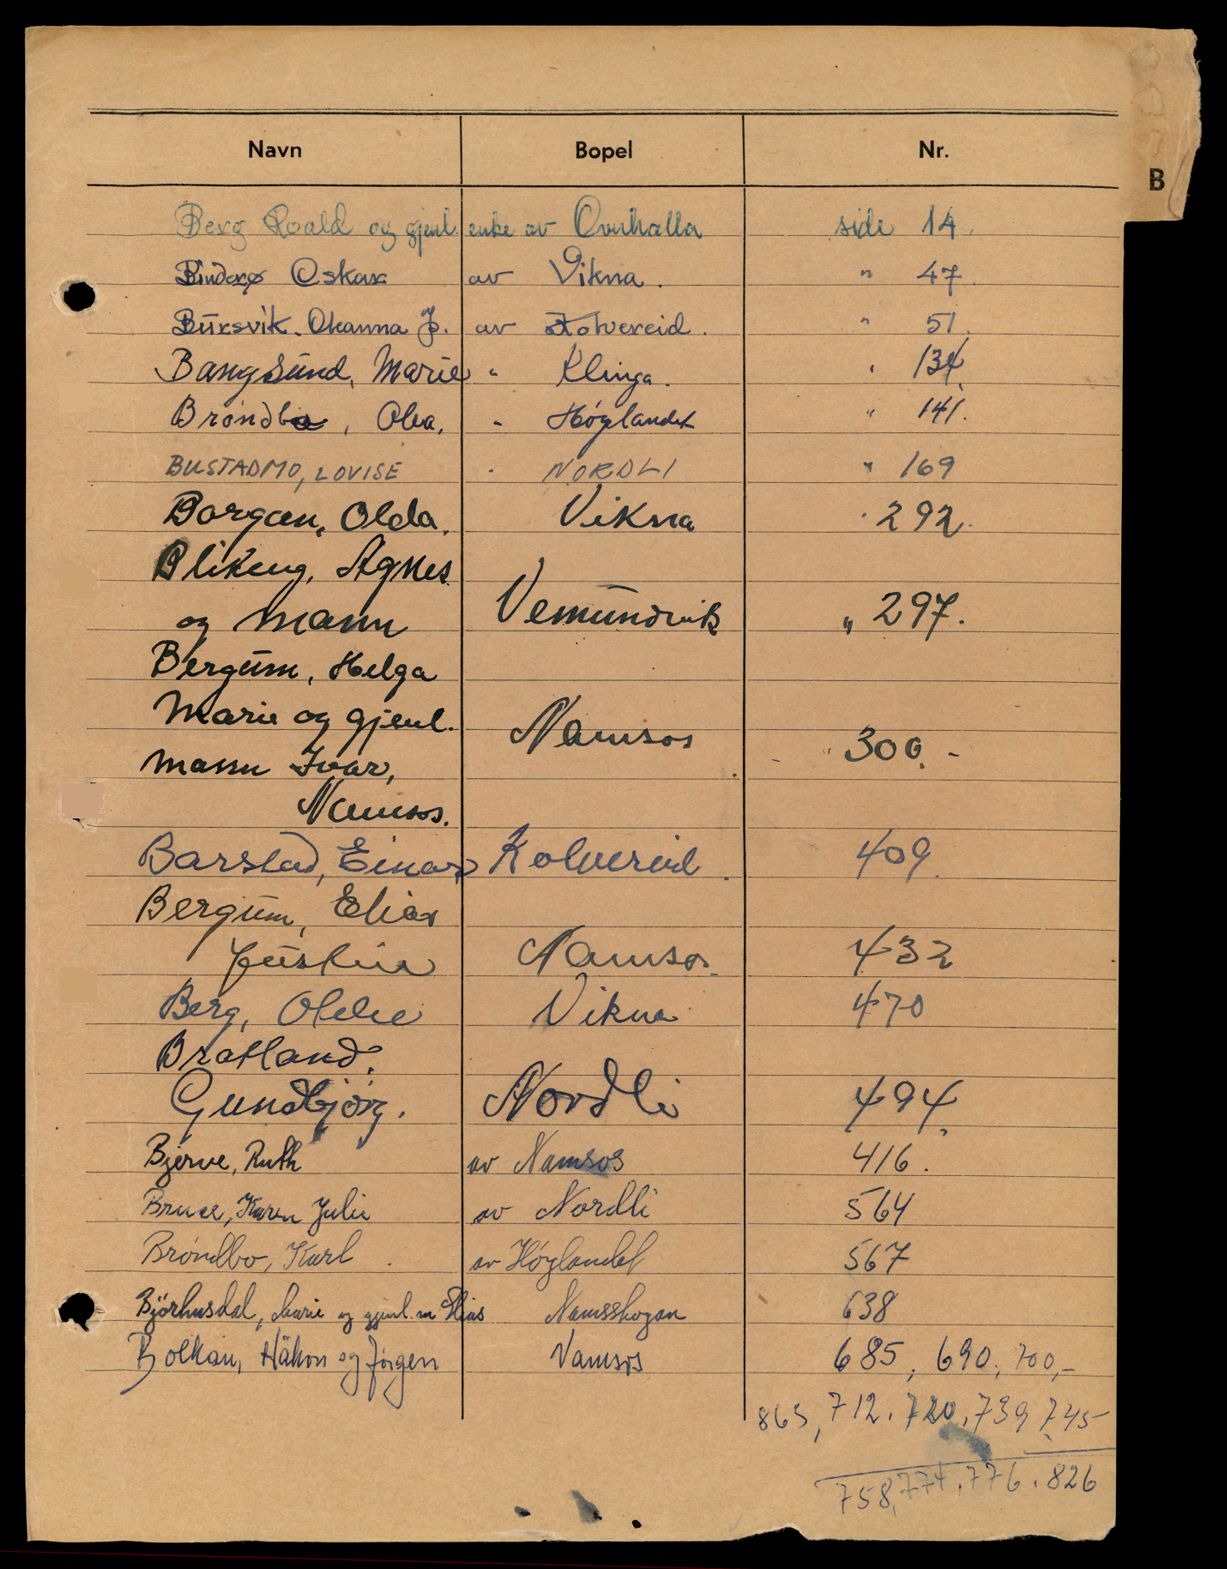 Navn Bopel Nr.
B
Berg Roald og gjenl. enke av Overhalla side 14.
Oskar av Vikna. " 47.
Bursvik. Oleanna J. av Kolvereid. " 51.
Bangsund, Marie " Klinga. " 134.
Brøndbo, Olea. " Høylandet " 141.
BUSTADMO, LOVISE " NORDLI " 169
Borgan, Olda. Vikna " 292.
Blikeng, Agnes
og mann Vemundvik " 297.
Bergum, Helga
Marie og gjenl. Namsos
mann Ivar, " 300.-
Namsos.
Barstad, Einar Kolvereid. 409.
Bergum, Elias
Justin Namsos. 432
Berg, Vikna 470
Bratland,
Gundbjörg. Nordli 494.
Bjerve, Ruth av Namsos 416.
Karen Julie av Nordli 564
Brøndbo, Karl av Høylandet 567
Björhusdal, Marie og gjenl. m Elias Namsskogan 638
Bolkan, Håkon og Jörgen Namsos 685, 690, 700,-
865, 712. 720. 739 745
758, 774. 776. 826